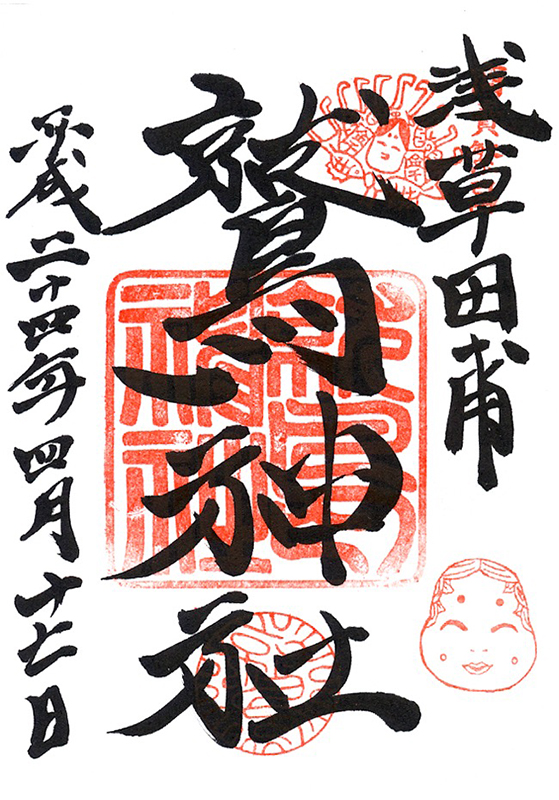 浅草田甫
鷲神社
平成二十四年四月十七日